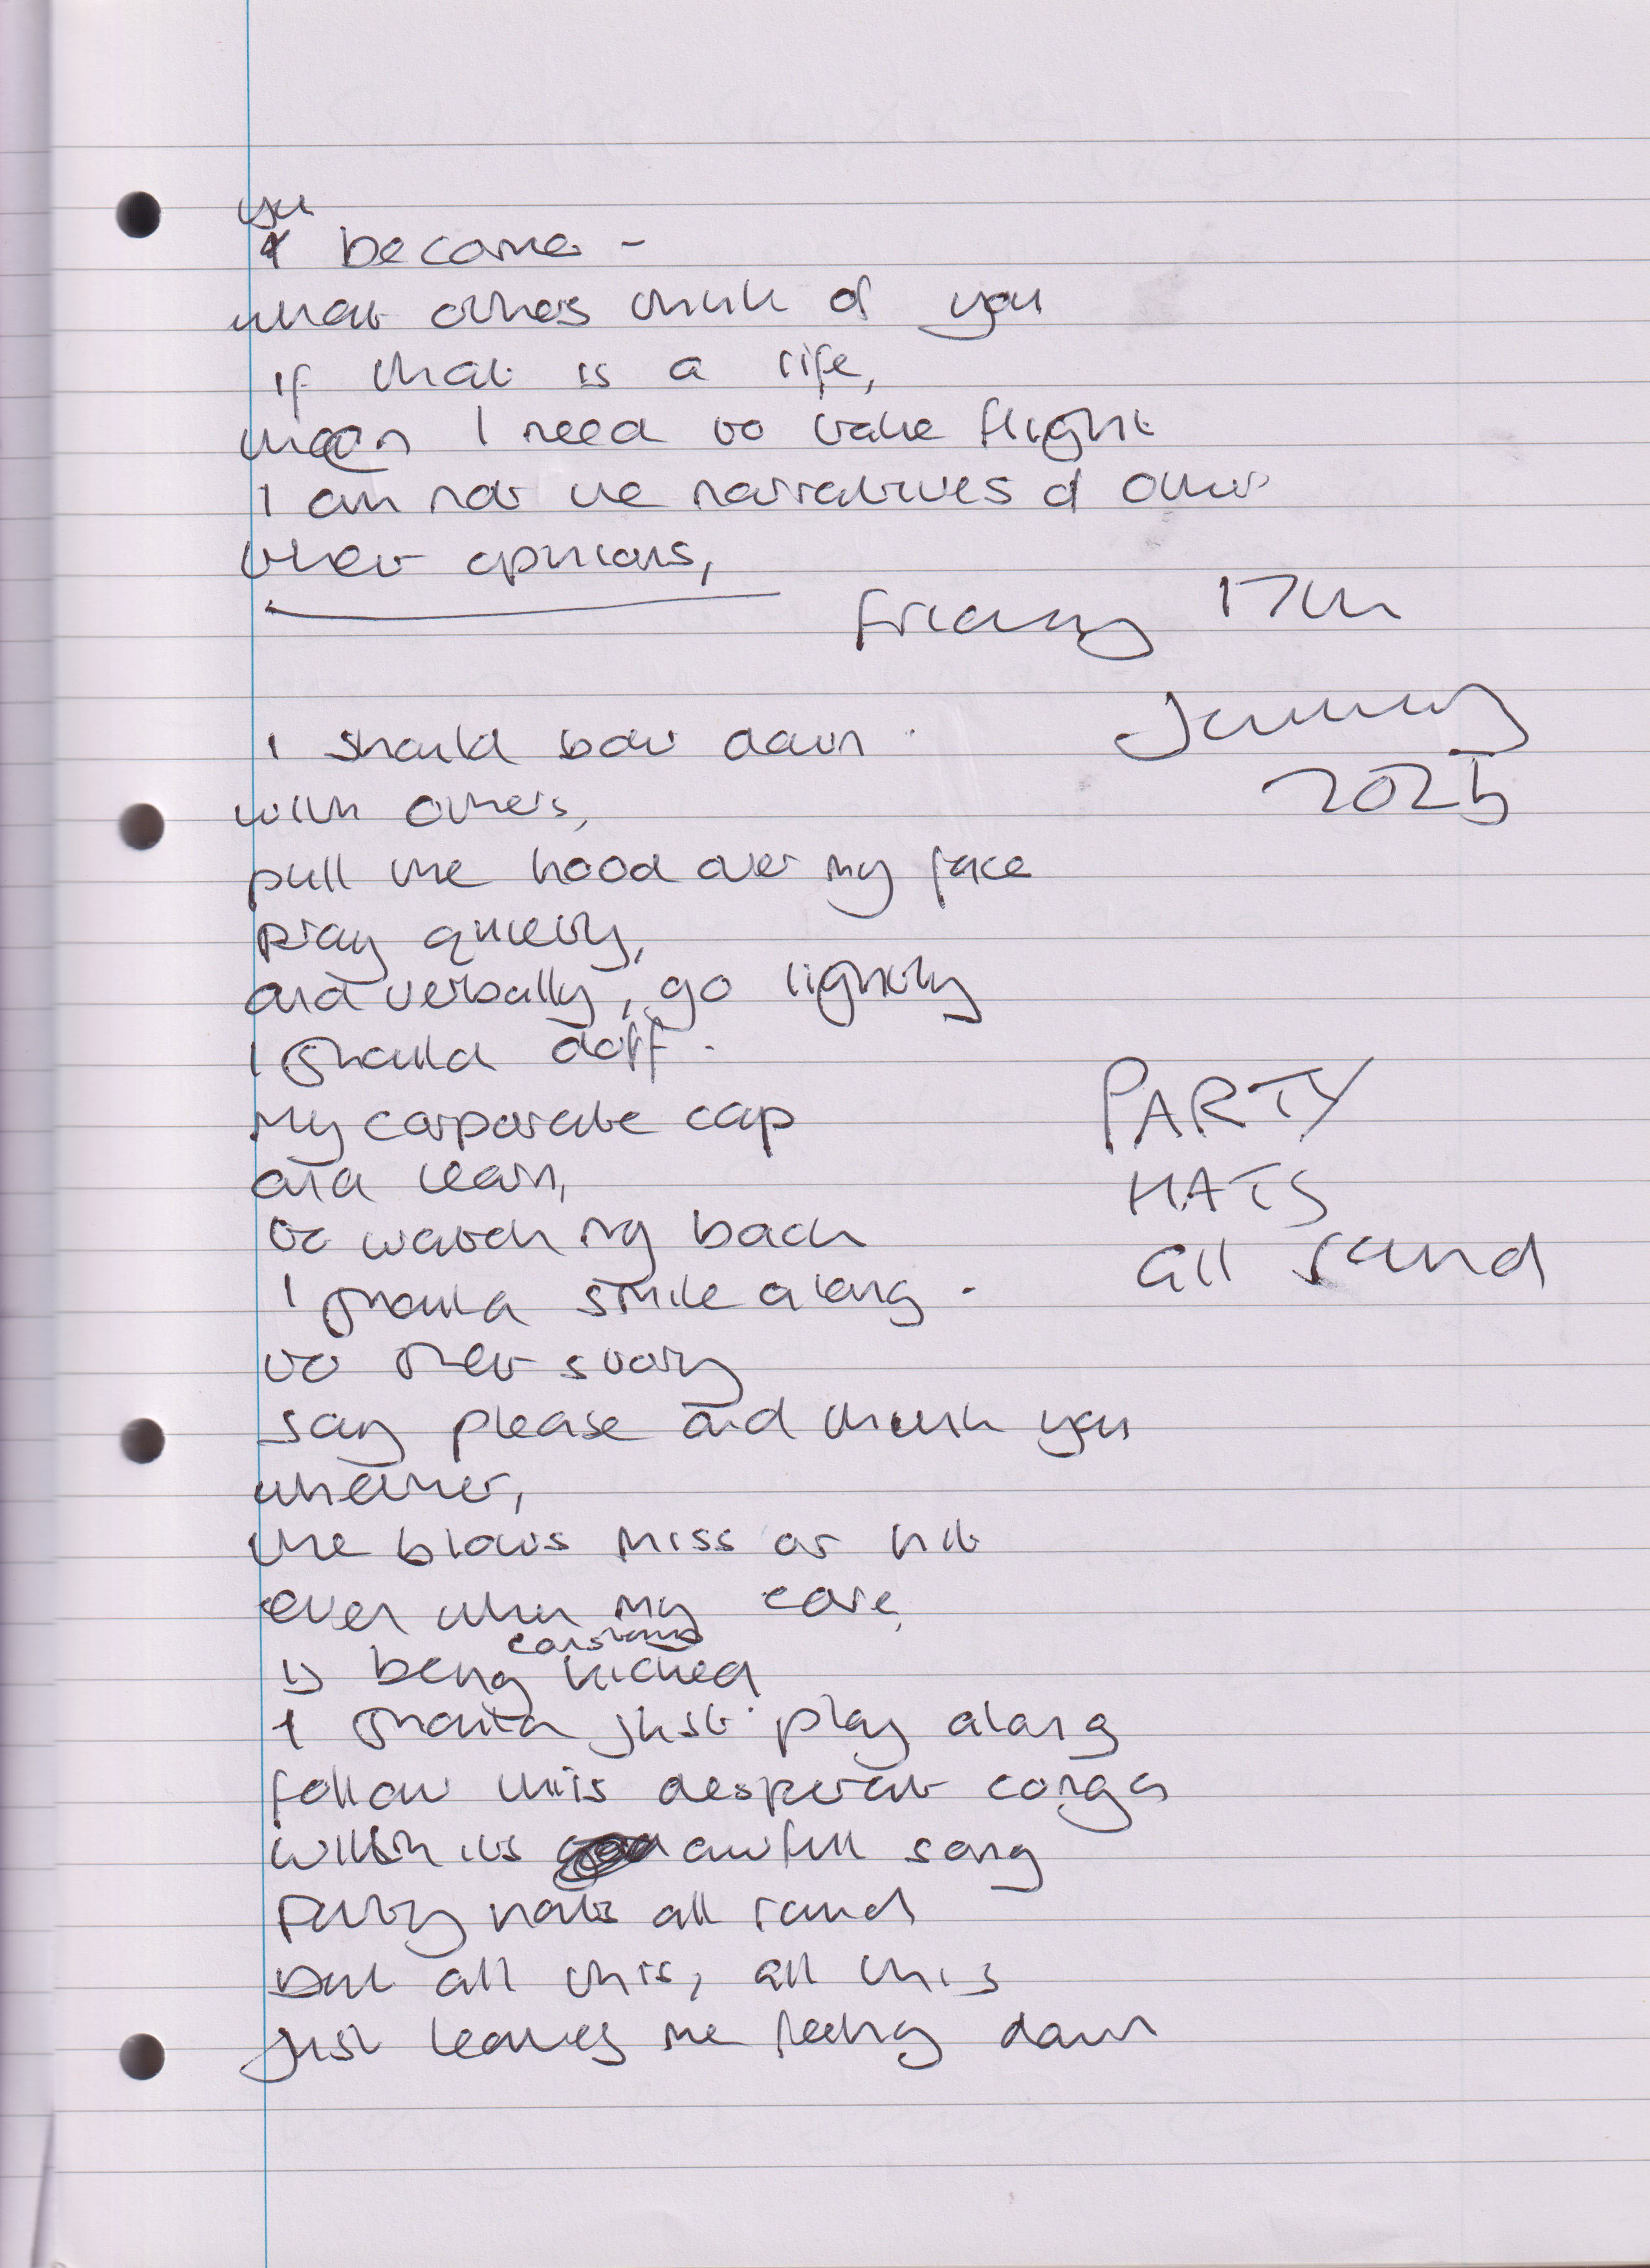 you
I become -
what others think of you
if that is a life,
then I need to take flight
I am not the narratives of others
their opinions,
Friday 17th
January
2025
I should bow down.
with others,
pull the hood over my face
pray quietly,
and verbally, go lightly
I should doff.
my corporate cap
and learn,
to watch my back
PARTY
HATS
all round
I should smile along.
to their story
say please and thank you
whether,
the blows miss or hit
even when my core,
constantly
is being kicked
I should just play along
follow this desperate conga
with its awful song
Party hats all round
but all this, all this
just leaves me feeling down